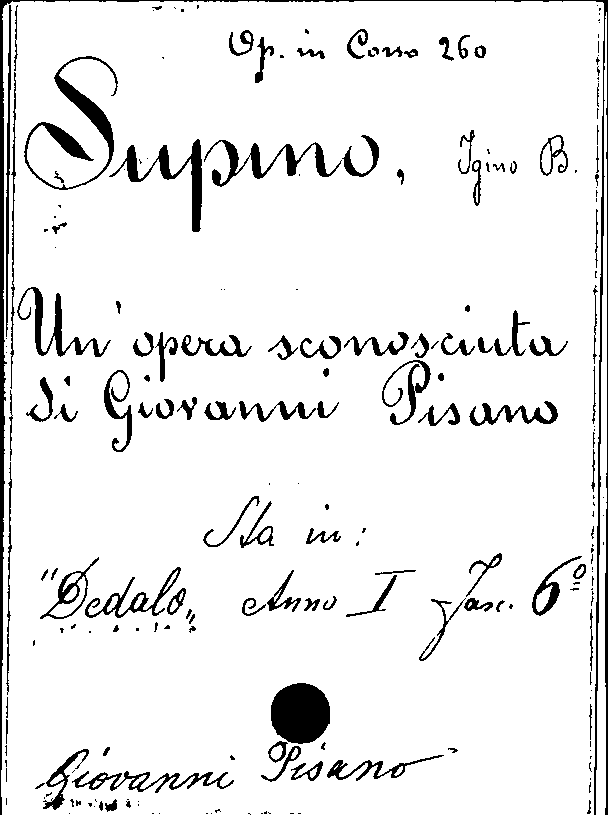 Op. in Corso 260
Supino, Igino B.
Un'opera sconosciuta
di Giovanni Pisano
Sta in:
"Dedalo„ Anno I Fasc. 6º
Giovanni Pisano